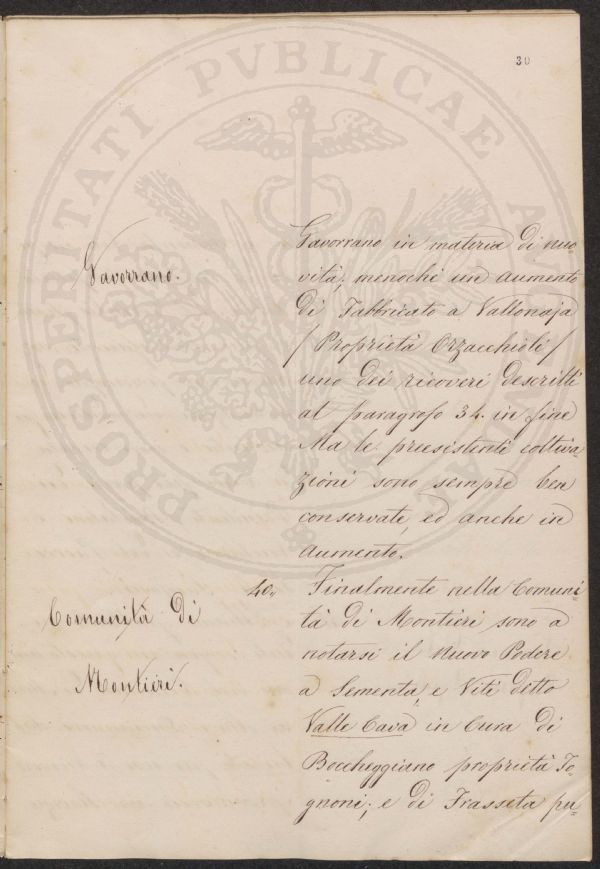 30
Gavorrano.
Gavorrano in materia di nuo
vità, menochè un aumento
di Fabbricato a Vallonaja
/ Proprietà Orzacchioli /
uno dei ricoveri descritti
al paragrafo 34. in fine
Ma le preesistenti coltiva-
zioni sono sempre ben
conservate, ed anche in
aumento.
Comunità di
Montieri.
40. Finalmente nella Comuni-
tà di Montieri sono a
notarsi il nuovo Podere
a Sementa, e Viti detto
Valle Cava in Cura di
Boccheggiano proprietà To-
gnoni; e di Frasseta pu-
PROSPERITATI PVBLICAE